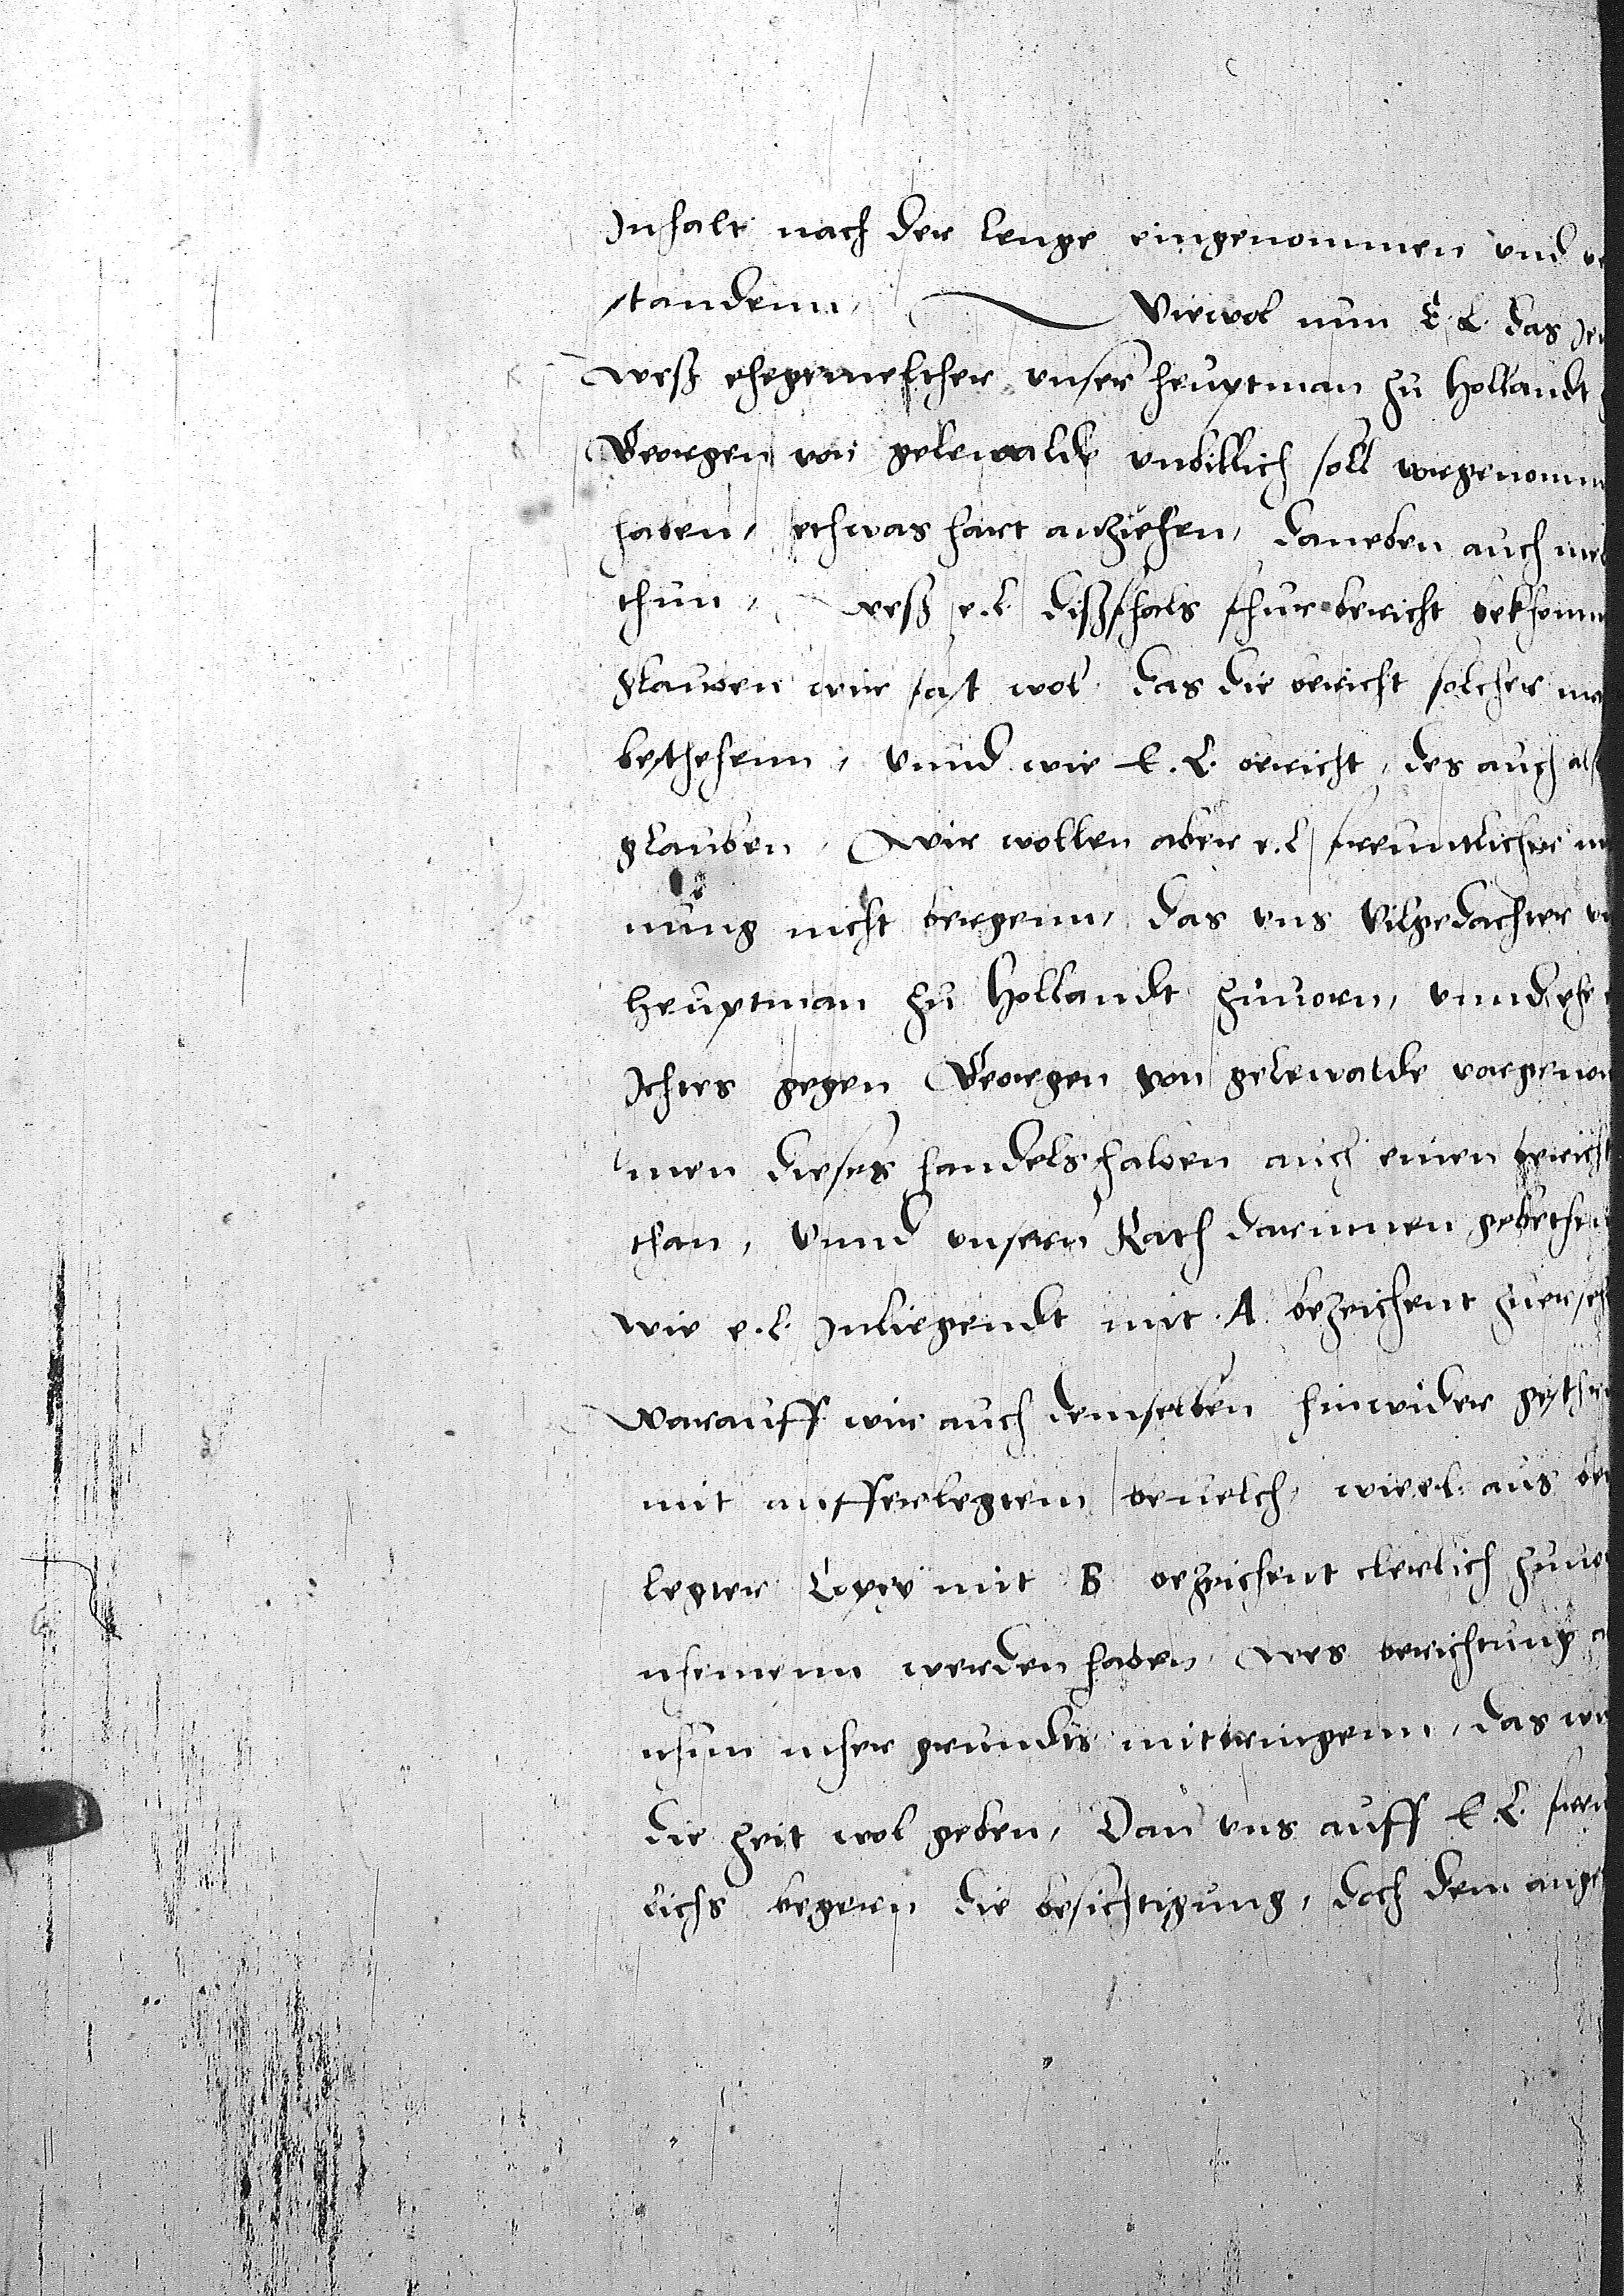 Inhalt nach der lenge eingenommen und ver
standenn, Wiewol nun E. L. das Jen
weß ehegemelther unser heuptman zu Hollandt
Georgen von gelewalde unbillich soll vorgenomm
haben, ethwas hart anziehen, daneben auch mel
thun, weß e. l. dißfhals fhur bericht bekhomm
glauben wir fast wol das die bericht solcher ma
besthehenn, Unnd wie E. L. bericht, des auch also
glauben, Wir wollen aber e. l. freuntlicher mei
nung nicht bergenn, das uns Vilgedachter un
heuptman zu Hollandt zuuorn, unnd ehe
Ichtes gegen Georgen von gelewalde vorgenom
men dieses handels halben auch einen bericht
than, Unnd unsern Rath darinnen gebethen
wie e. l. Inliegendt mit A bezeichent zuerseh
Worauff wir auch demselben hinwider geschr
mit aufferlegtem beuelch, wie e. l. aus bei
legter Copey mit B bezeichent clerlich zuuor
nhemenn werden haben, Wes berichtung
nhun mher grundts mitbringenn, das wir
die zeit wol geben, Dan uns auff E. L. freu
lichs begern die besichtigung, doch dem ange